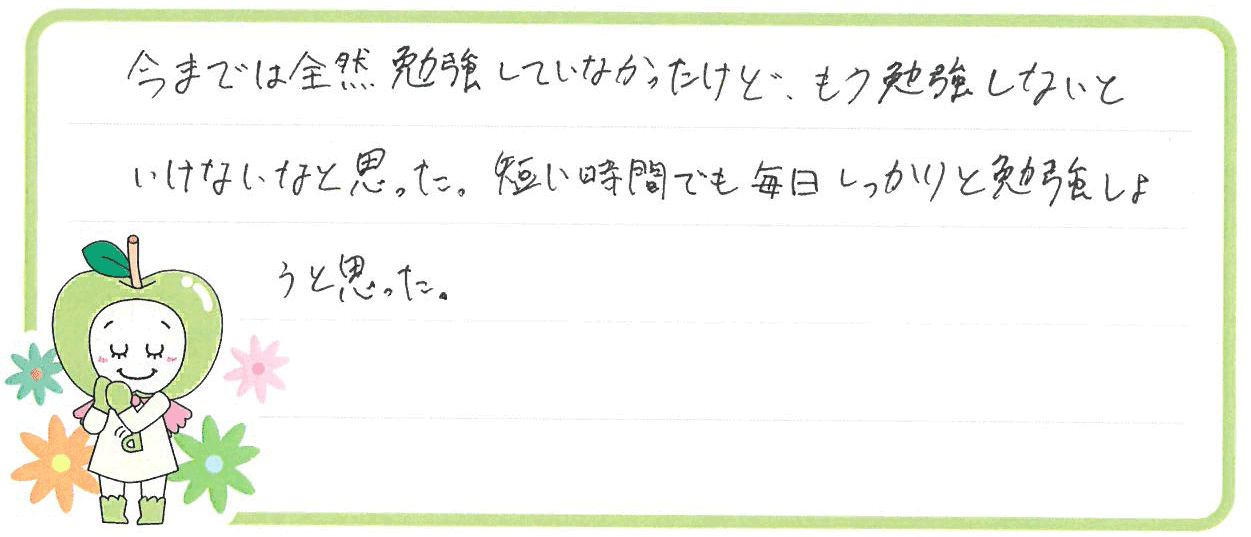 今までは全然勉強していなかったけど、もう勉強しないと
いけないなと思った。短い時間でも毎日しっかりと勉強しよ
うと思った。